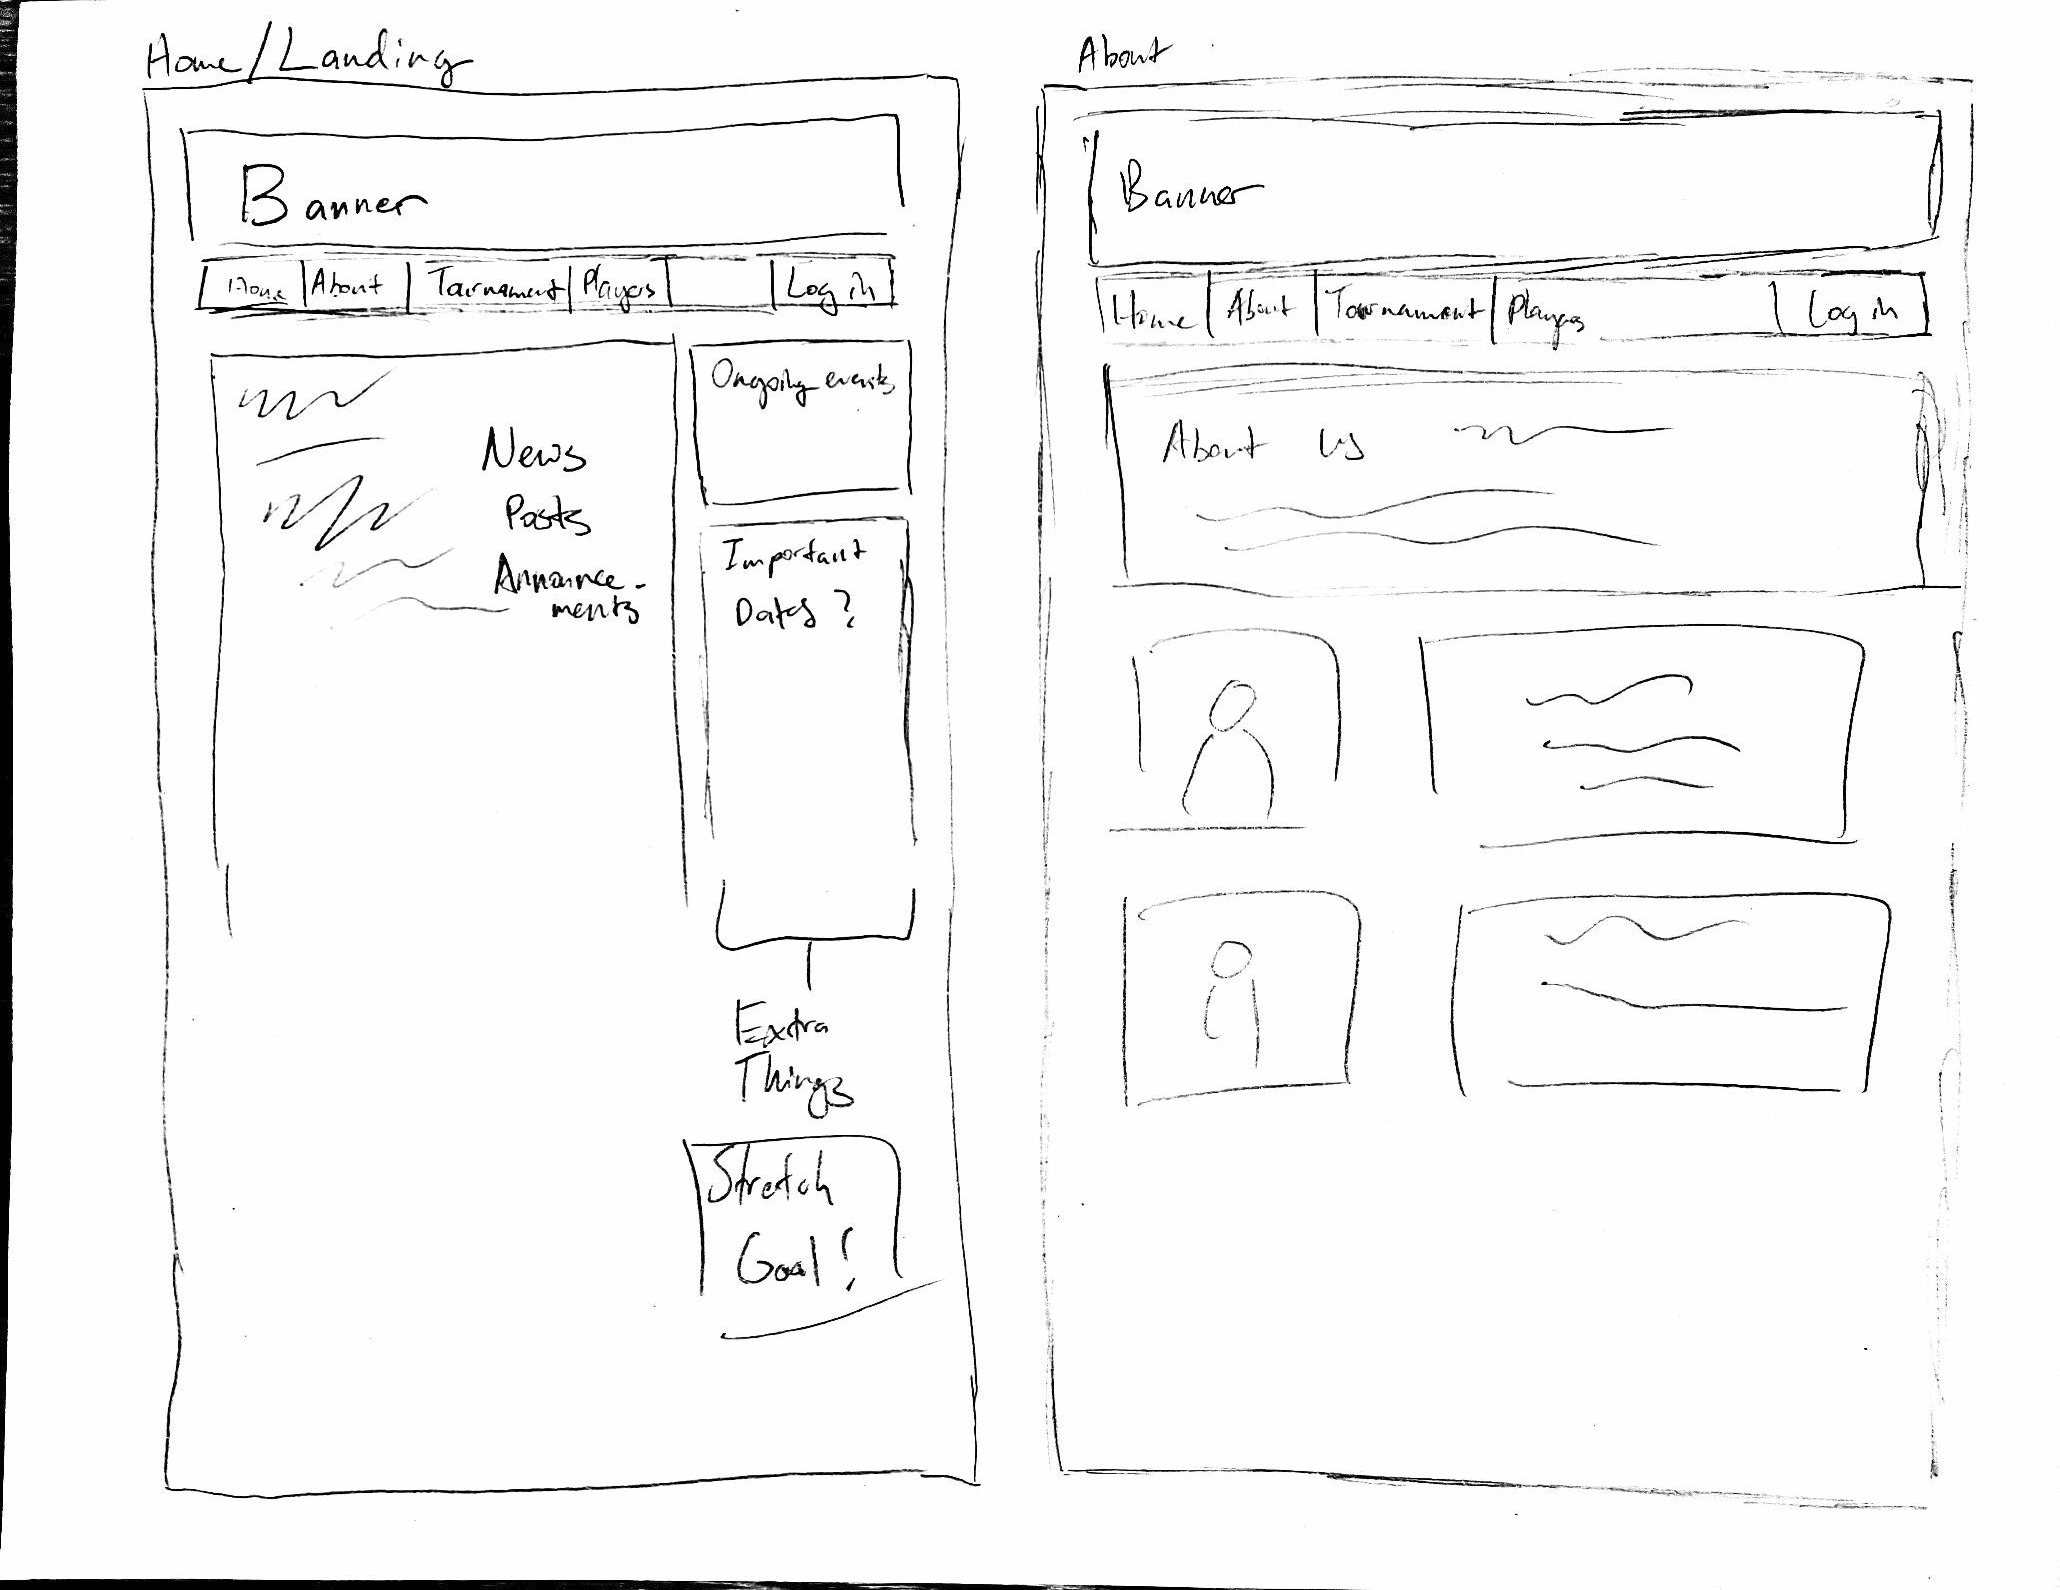 Home/Landing
Banner
Home About Tournament Players Log in
News
Posts
Announce-
ments
Ongoing events
Important
Dates ?
Extra
Things
Stretch
Goal!
About
Banner
Home About Tournament Players Log in
About us